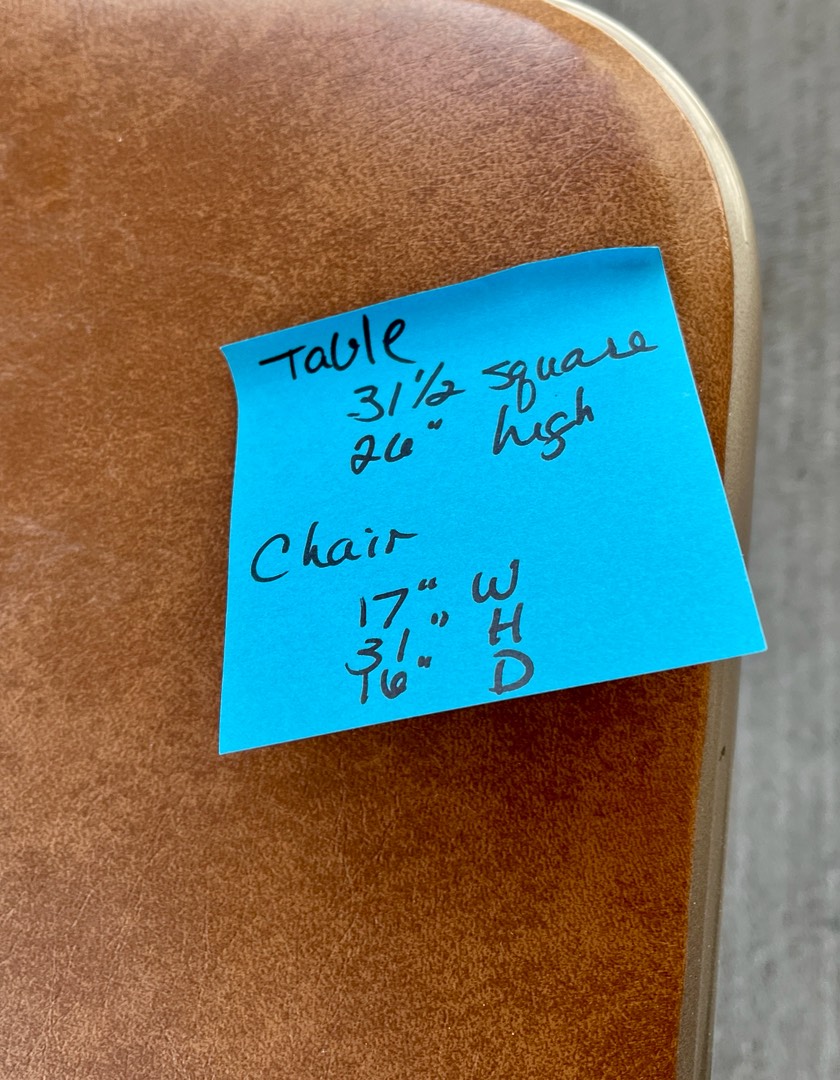 Table
31 1/2 square
26" high
Chair
17" W
31" H
16" D